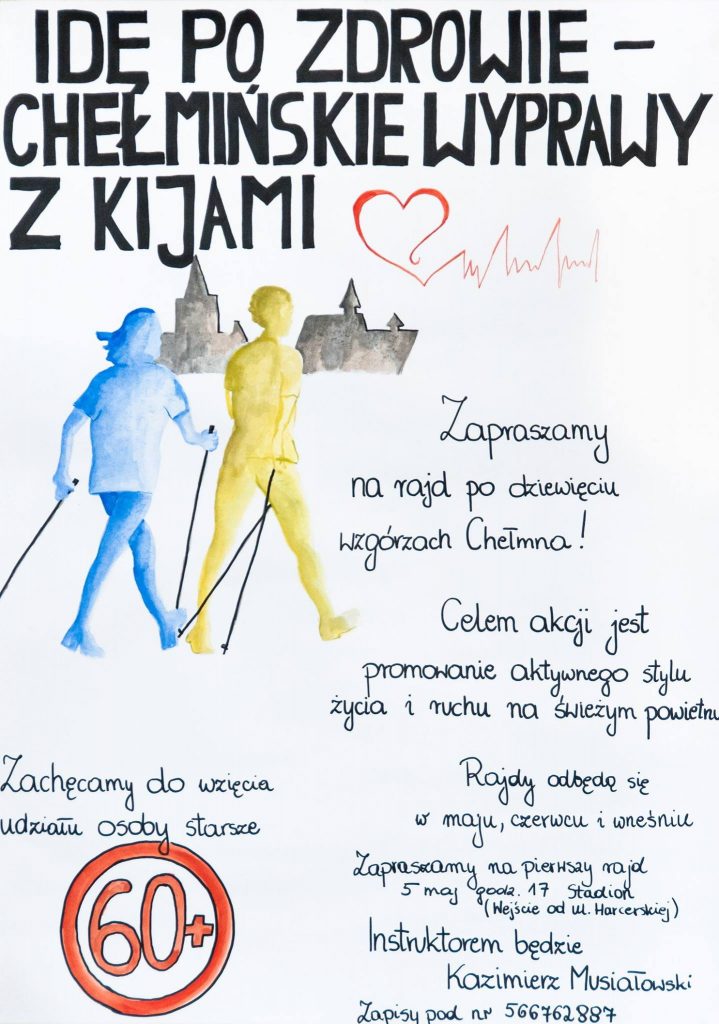 IDĘ PO ZDROWIE –
CHEŁMIŃSKIE WYPRAWY
Z KIJAMI
Zapraszamy
na rajd po dziewięciu
wzgórzach Chełmna!
Celem akcji jest
promowanie aktywnego stylu
życia i ruchu na świeżym powietrzu
Zachęcamy do wzięcia
udziału osoby starsze
60+
Rajdy odbędą się
w maju, czerwcu i wneśniu
Zapraszamy na pierwszy rajd
5 maj godz. 17 Stadion
(Wejście od ul. Harcerskiej)
Instruktorem będzie
Kazimierz Musiałowski
Zapisy pod nr 566762887